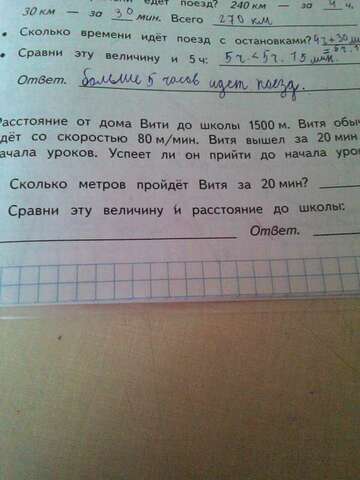 едет поезд? 240 км — за 4 ч.
30 км — за 30 мин. Всего 270 км
• Сколько времени идёт поезд с остановками?
• Сравни эту величину и 5 ч: 5ч.<5ч. 15 мин.
Ответ. больше 5 часов идет поезд.
Расстояние от дома Вити до школы 1500 м. Витя
со скоростью 80 м/мин. Витя вышел за 20 мин
начала уроков. Успеет ли он прийти до начала
Сколько метров пройдёт Витя за 20 мин?
Сравни эту величину и расстояние до школы:
Ответ.